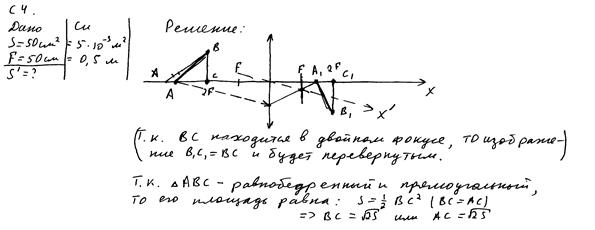 С4.
Дано | Си
S=50см² = 5·10⁻³ м²
F=50см = 0,5 м
S'=?
Решение:
B
A A C 2F F F A₁ 2F C₁ X
B₁ X'
(Т.к. BC находится в двойном фокусе, то изображе-
ние B₁C₁=BC и будет перевернутым.
Т.к. △ABC - равнобедренный и прямоугольный,
то его площадь равна: S=½ BC² (BC=AC)
=> BC=√2S или AC=√2S